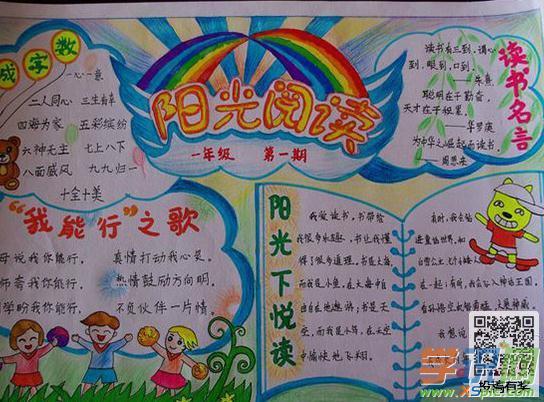 阳光阅读
一年级 第一期
成字数
一心一意
二人同心 三生有幸
四海为家 五彩缤纷
六神无主 七上八下
八面威风 九九归一
十全十美
读书名言
读书有三到,谓心
到,眼到,口到。
——朱熹
聪明在于勤奋,
天才在于积累。
——华罗庚
为中华之崛起而读书。
——周恩来
“我能行”之歌
母说我你能行, 真情打动我心裳。
师夸我你能行, 热情鼓励方向明。
同学盼我你能行, 不负伙伴一片情。
阳光下悦读
我爱读书,书带给
我很多乐趣,书让我懂
得了很多道理。书是大海,
而我是小鱼,在大海中自
由自在地遨游;书是天
空,而我是小鸟,在天空
中愉快地飞翔。
有时,我会钻
进童话的世界,和
白雪公主
在一起;有时,我会
学
www.xspic.com
投稿有奖